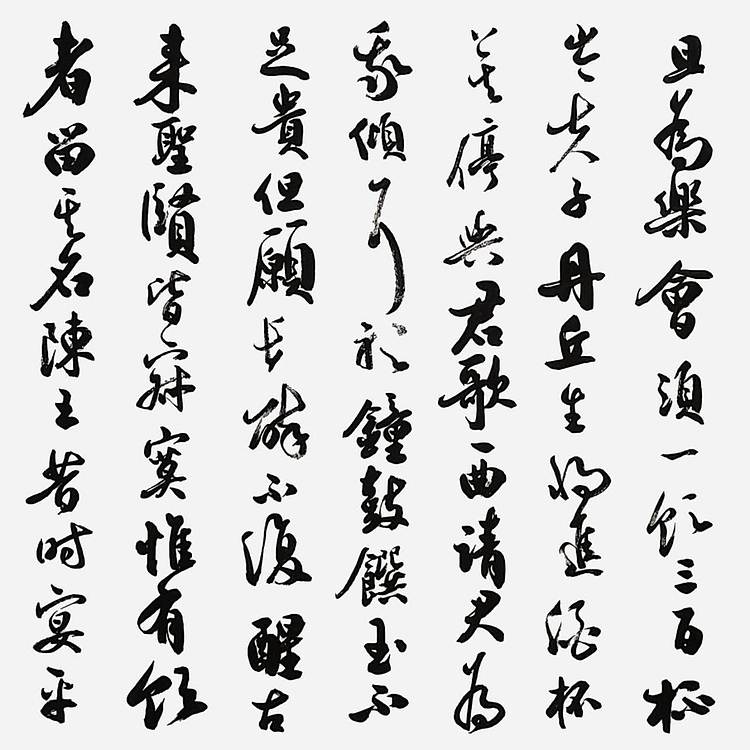 且為樂會須一飲三百杯
岑夫子丹丘生將進酒杯
莫停與君歌一曲請君為
我傾耳聽鐘鼓饌玉不
足貴但願長醉不復醒古
來聖賢皆寂寞惟有飲
者留其名陳王昔時宴平